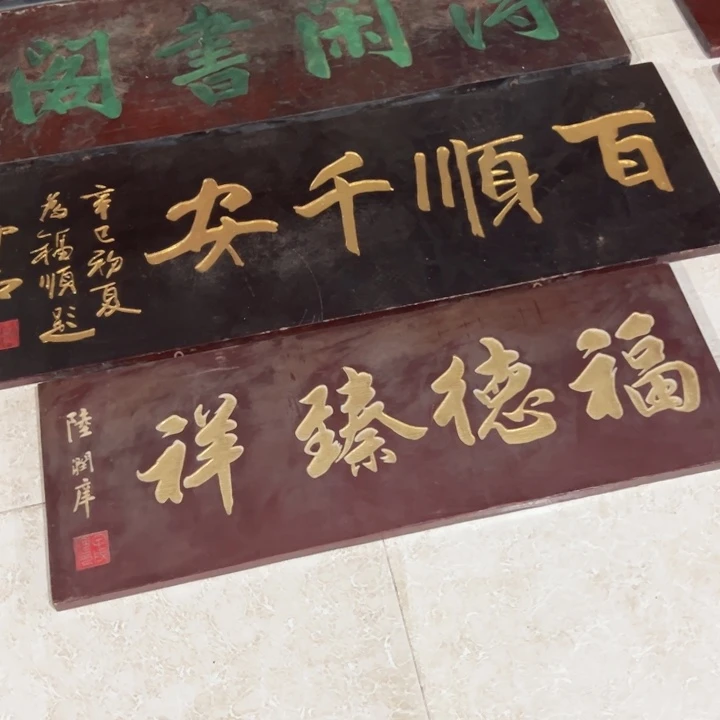 閑書閣
百順千安
辛巳初夏
為福順題
福德臻祥
陸潤庠